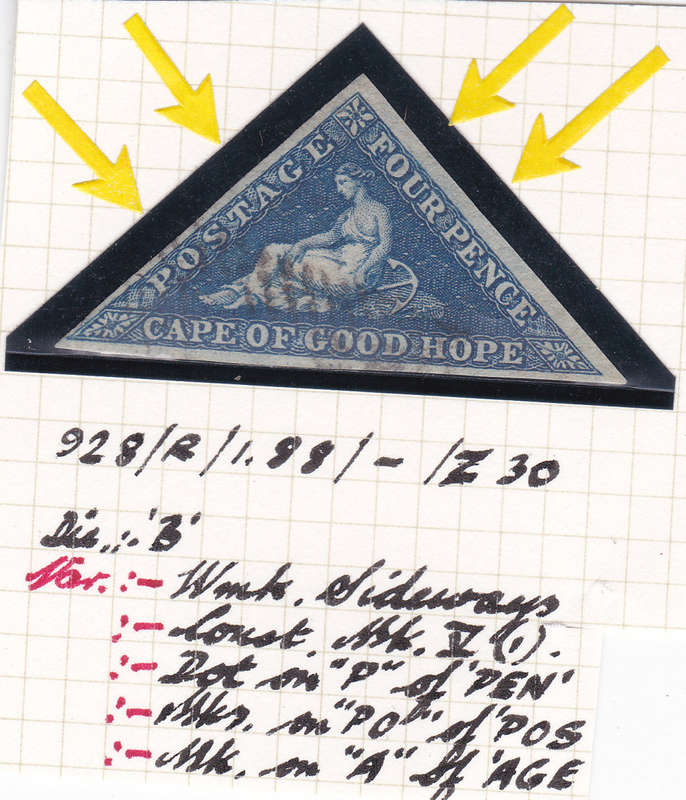 POSTAGE
FOUR PENCE
CAPE OF GOOD HOPE
928/R/1.88/-/Z 30
Die.:- 'B'
Var.:- Wmk. Sideways
:- Const. Mk. V (1).
:- Dot on "P" of 'PEN'
:- Mks. on "PO" of 'POS
:- Mk. on "A" of 'AGE